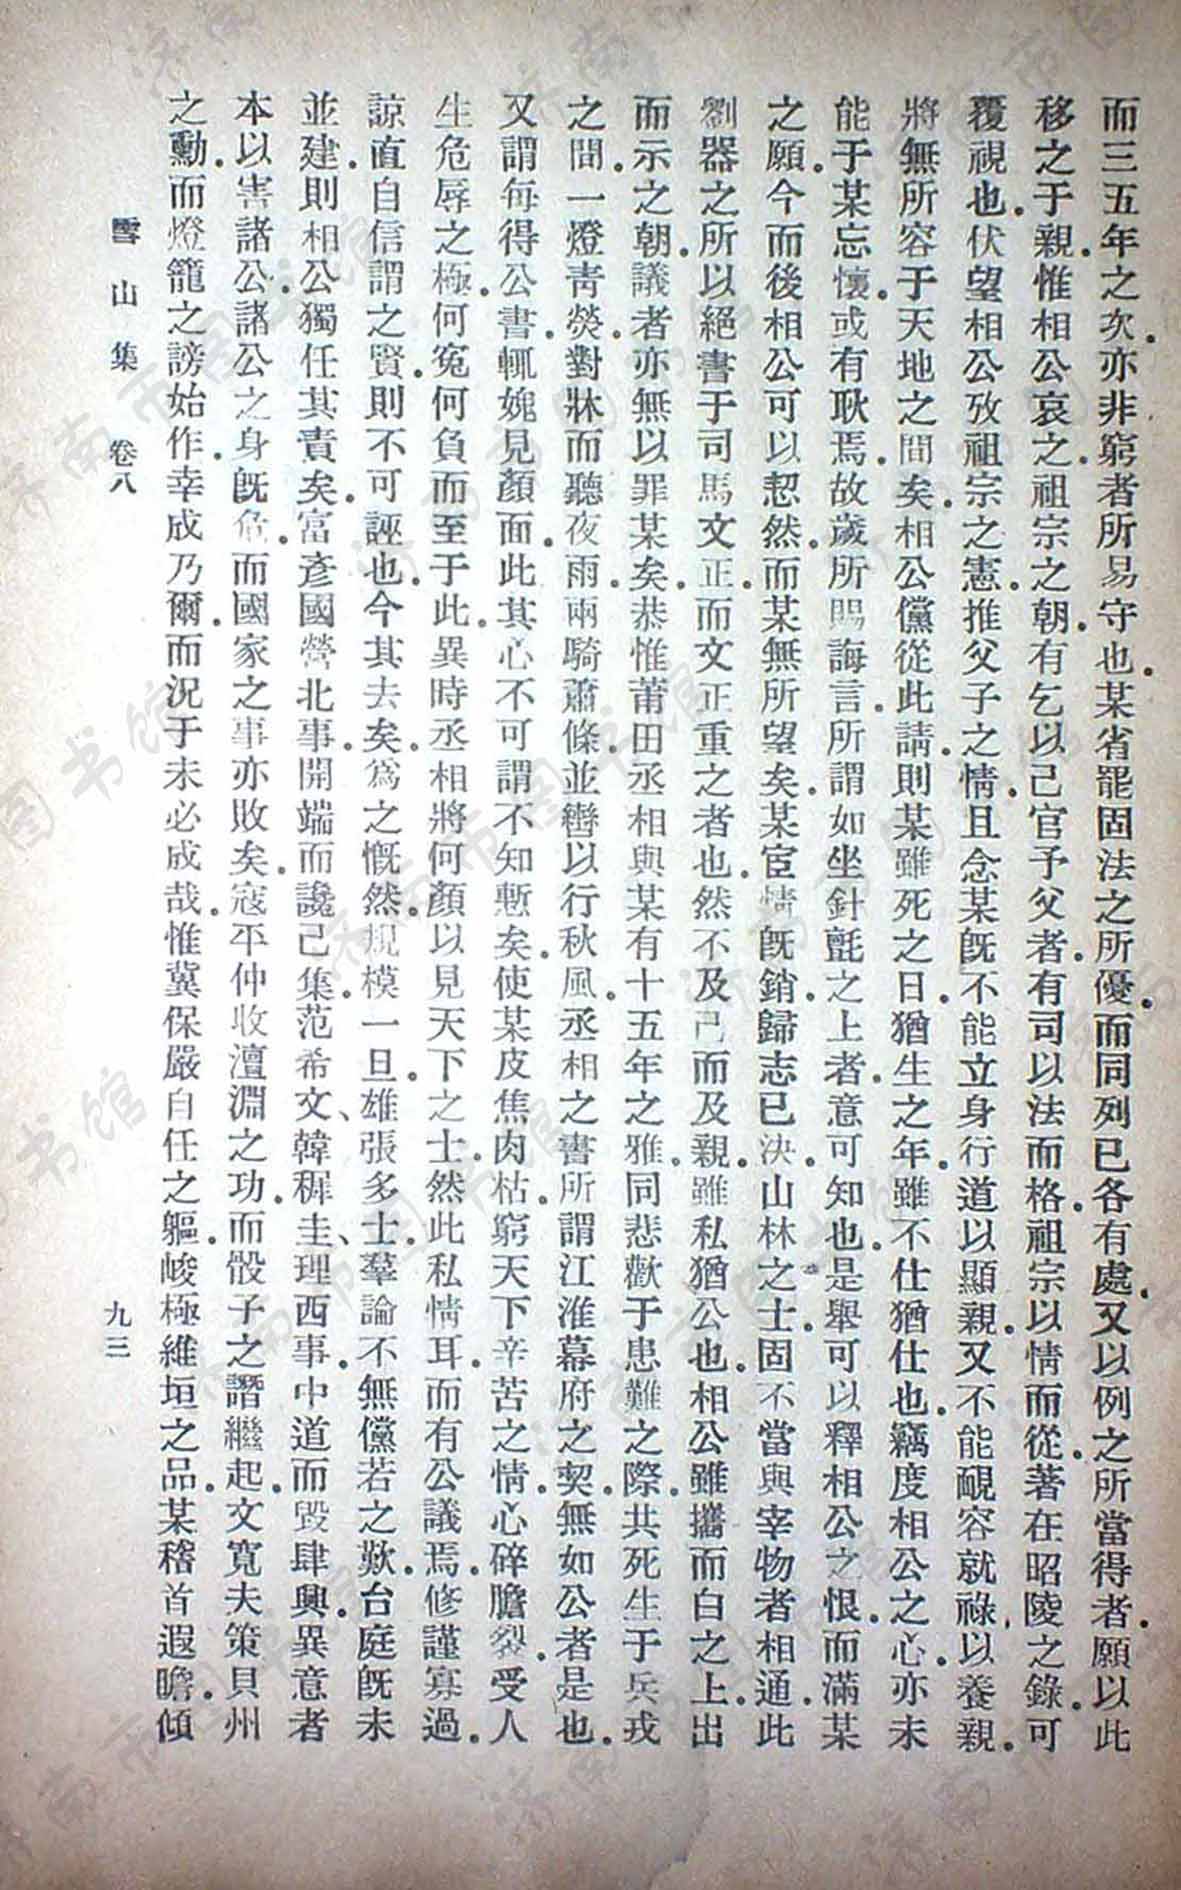 而三五年之次。亦非窮者所易守也。某省罷固法之所優。而同列已各有處。又以例之所當得者。願以此
移之于親。惟相公哀之。祖宗之朝。有乞以己官予父者。有司以法而格。祖宗以情而從。著在昭陵之錄。可
覆視也。伏望相公攷祖宗之憲。推父子之情。且念某既不能立身行道以顯親。又不能靦容就祿。以養親。
將無所容于天地之間矣。相公儻從此請。則某雖死之日。猶生之年。雖不仕猶仕也。竊度相公之心。亦未
能于某忘懷。或有耿焉。故歲所賜誨言。所謂如坐針氈之上者。意可知也。是舉可以釋相公之恨。而滿某
之願。今而後相公可以恝然。而某無所望矣。某宦情既銷。歸志已決。山林之士。固不當與宰物者相通。此
劉器之所以絕書于司馬文正。而文正重之者也。然不及己而及親。雖私猶公也。相公雖攜而白之上。出
而示之朝。議者亦無以罪某矣。恭惟莆田丞相與某有十五年之雅。同悲歡于患難之際。共死生于兵戎
之間。一燈青熒。對牀而聽夜雨。兩騎蕭條。並轡以行秋風。丞相之書。所謂江淮幕府之契。無如公者是也。
又謂每得公書。輒媿見顏面。此其心不可謂不知慙矣。使某皮焦肉枯。窮天下辛苦之情。心碎膽裂。受人
生危辱之極。何冤何負而至于此。異時丞相將何顏以見天下之士。然此私情耳。而有公議焉。修謹寡過。
諒直自信。謂之賢。則不可誣也。今其去矣。爲之慨然。規模一旦。雄張多士。羣論不無儻若之歎。台庭既未
並建。則相公獨任其責矣。富彥國營北事。開端而讒已集。范希文、韓穉圭、理西事。中道而毀肆興。異意者
本以害諸公。諸公之身既危。而國家之事亦敗矣。寇平仲收澶淵之功。而骰子之譖繼起。文寬夫策貝州
之勳。而燈籠之謗始作。幸成乃爾。而況于未必成哉。惟冀保嚴自任之軀。峻極維垣之品。某稽首遐瞻。傾
雪山集 卷八 九三